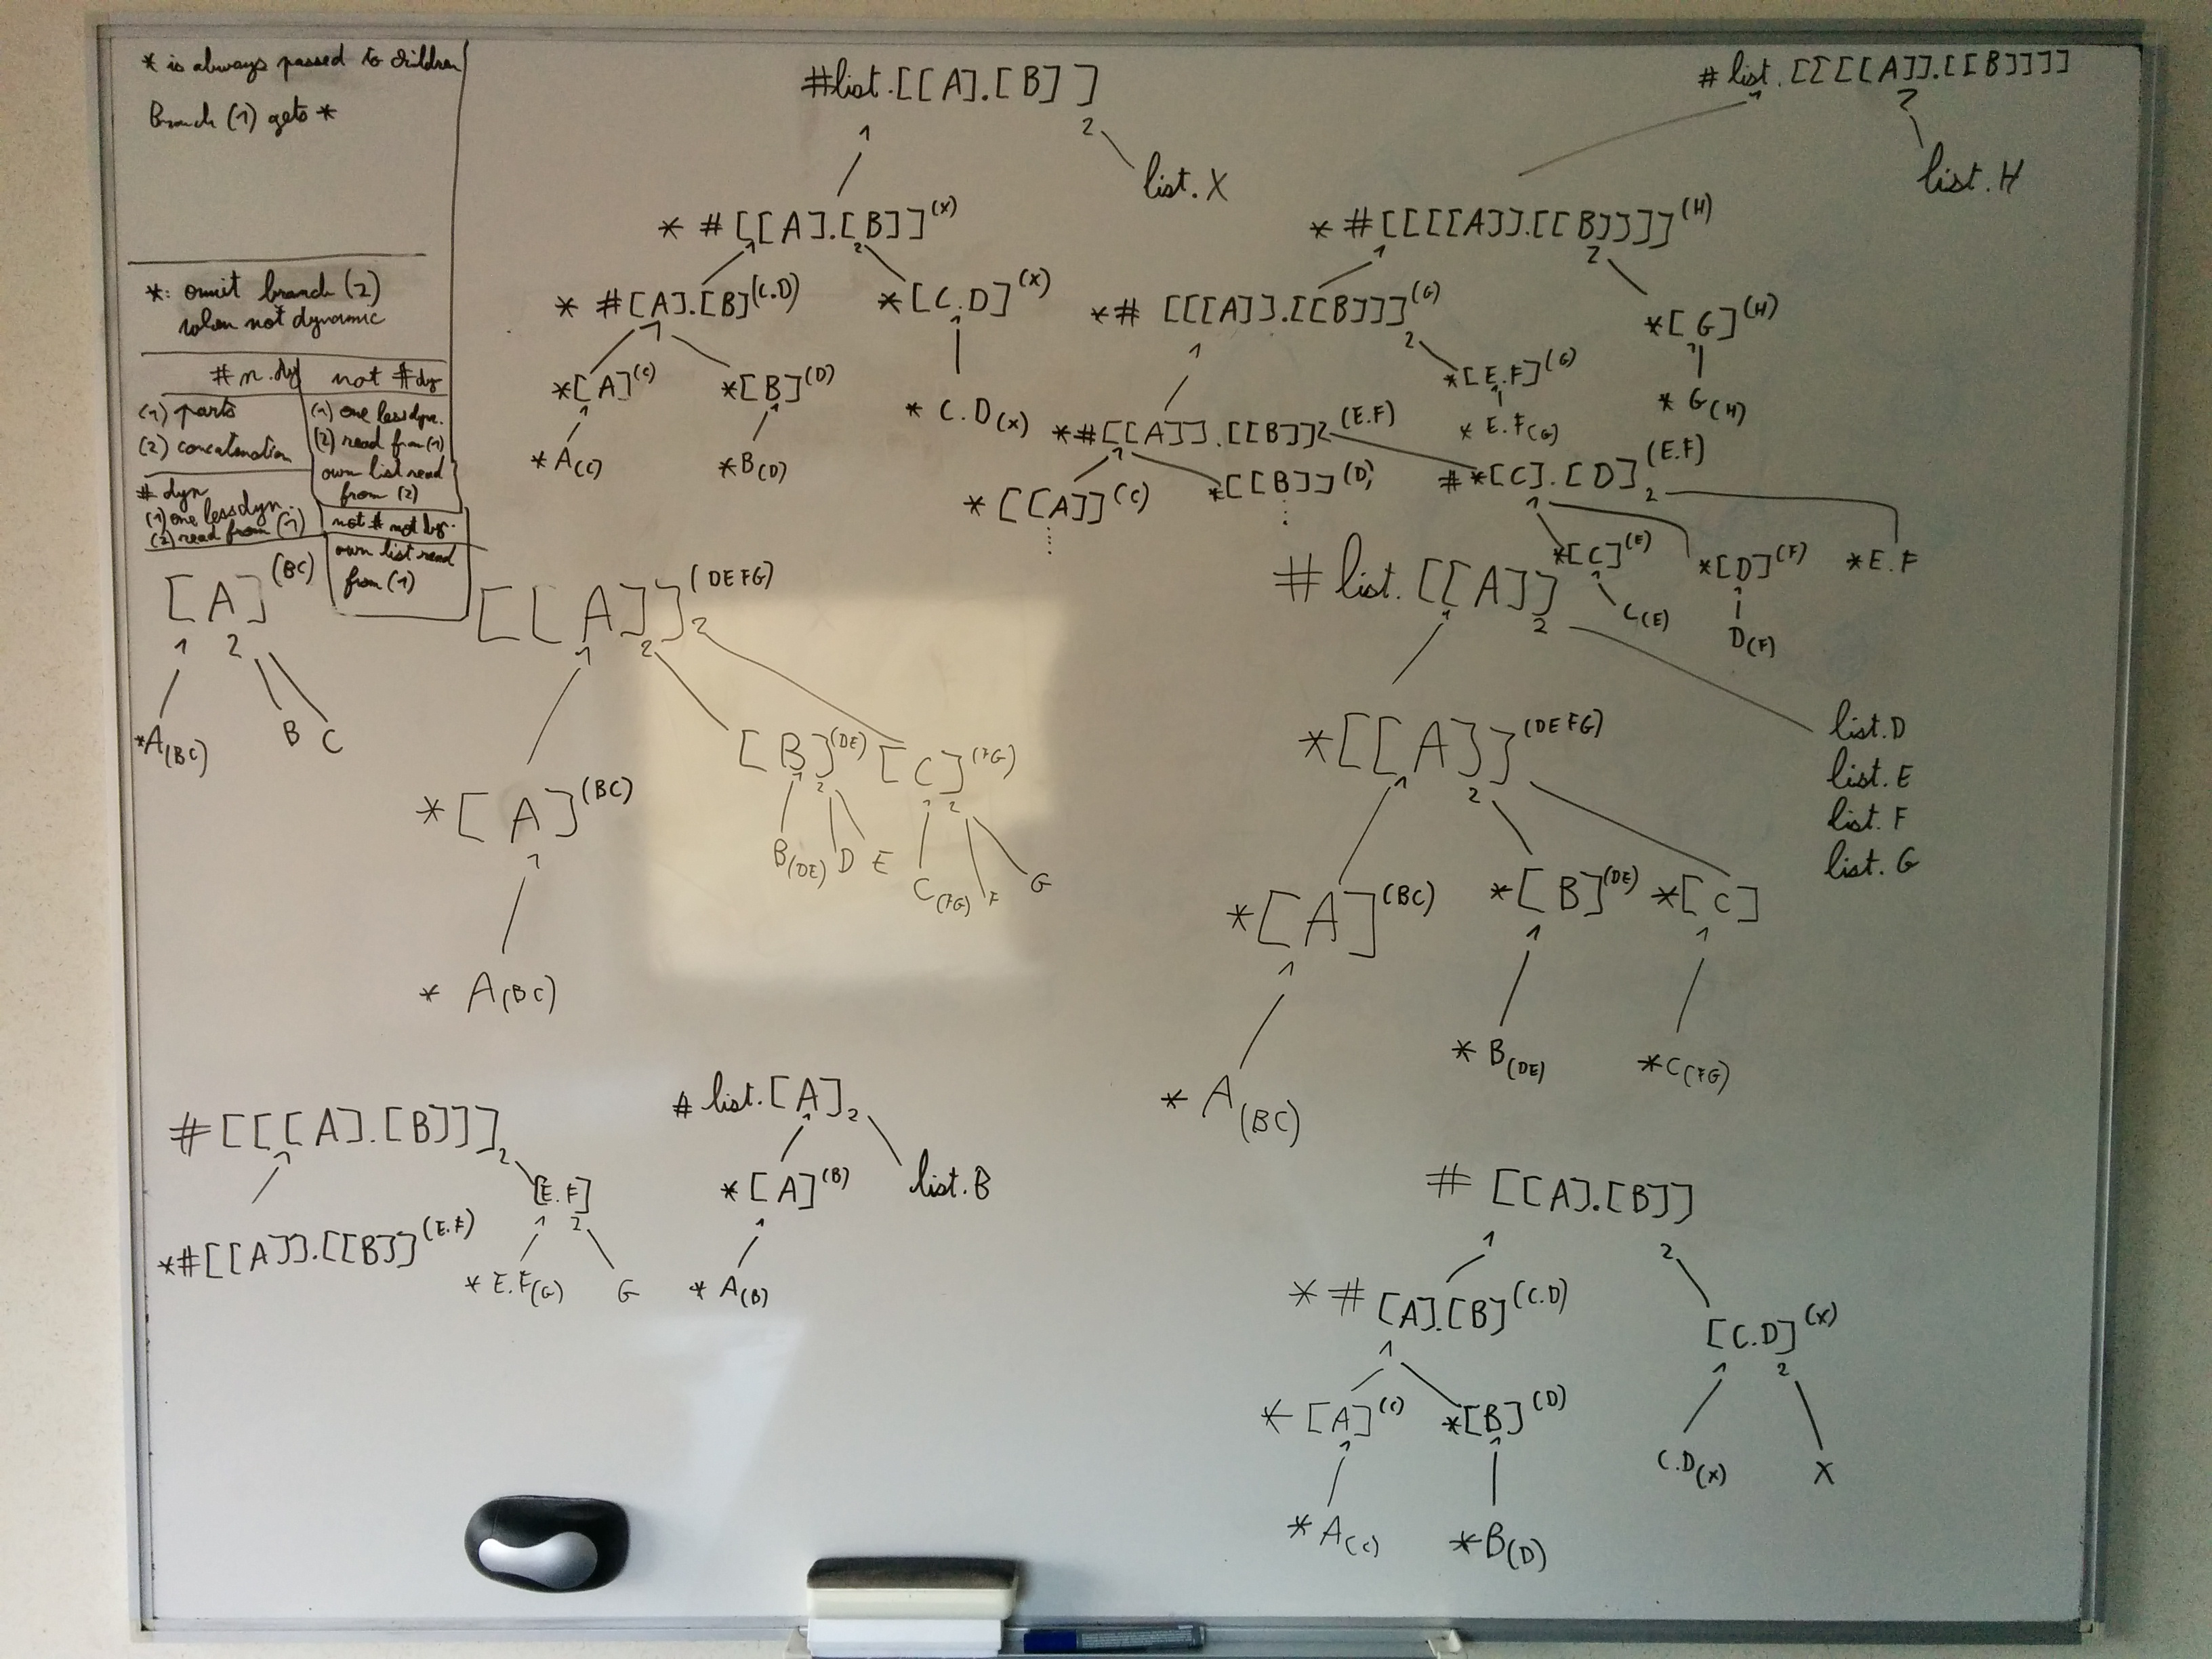 * is always passed to children
Branch (1) gets *
*: omit branch (2)
when not dynamic
# n.dy
(1) parts
(2) concatenation
not # dy
(1) one less dyn.
(2) read from (1)
own list read
from (2)
# dyn
(1) one less dyn.
(2) read from (1)
not # not dy.
own list read
from (1)
#list.[[A].[B]]
1 2
list.X
* #[[A].[B]](X)
1 2
* #[A].[B](C.D) *[C.D](X)
1 1
*[A](C) *[B](D) * C.D(X)
1 1
*A(C) *B(D)
# list.[[[[A]].[[B]]]]
1 2
list.H
* #[[[[A]].[[B]]]](H)
1 2
*# [[[A]].[[B]]](G) *[G](H)
1 2 1
*[E.F](G) * G(H)
1
* E.F(G)
*#[[A]].[[B]]2(E.F)
1
* [[A]](C) *[[B]](D) #*[C].[D]2(E.F)
1
*[C](E) *[D](F) *E.F
1 1
C(E) D(F)
[A](BC)
1 2
*A(BC) B C
[[A]]2(DEFG)
1 2
*[A](BC) [B](DE) [C](FG)
1 1 2 1 2
B(DE) D E C(FG) F G
* A(BC)
# list.[[A]]
1 2
list.D
list.E
list.F
list.G
*[[A]](DEFG)
1 2
*[A](BC) *[B](DE) *[C]
1 1 1
* A(BC) * B(DE) *C(FG)
#[[[A].[B]]]2
1
[E.F]
1 2
*#[[A]].[[B]](E.F) * E.F(G) G
# list.[A]2
1
*[A](B) list.B
1
* A(B)
# [[A].[B]]
1 2
* # [A].[B](C.D) [C.D](X)
1 1 2
* [A](C) *[B](D) C.D(X) X
1 1
* A(C) *B(D)